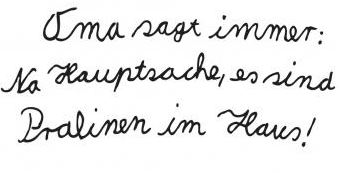 Oma sagt immer:
Na Hauptsache, es sind
Pralinen im Haus!